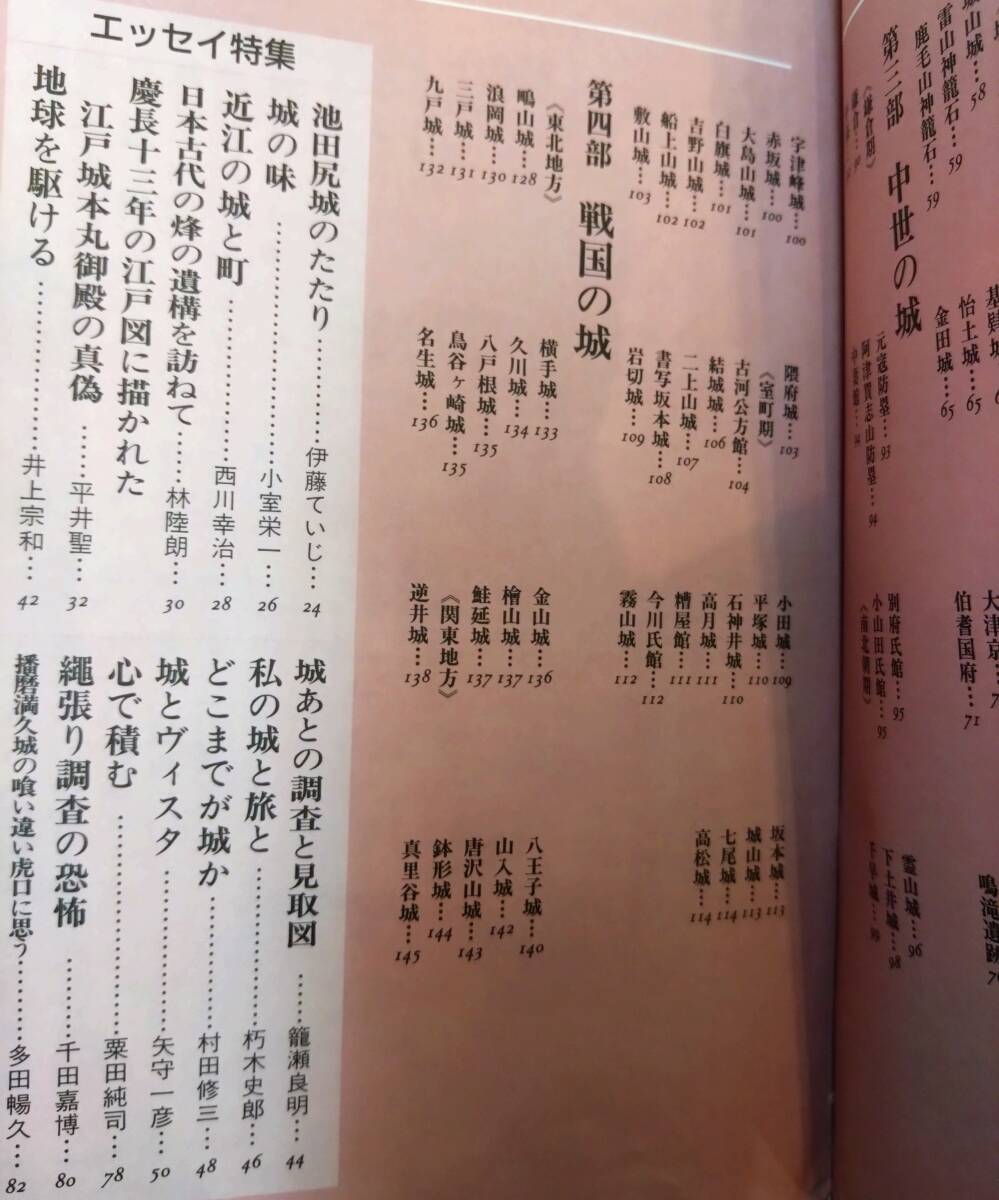 城山城…58
雷山神籠石…59
鹿毛山神籠石…59
怡土城…65
金田城…65
大津京…7
伯耆国府…71
鳴滝遺跡
第三部 中世の城
《鎌倉期》
元寇防塁…93
阿津賀志山防塁…94
別府氏館…95
小山田氏館…95
《南北朝期》
霊山城…96
下土井城…98
千早城…99
宇津峰城…100
赤坂城…100
大島山城…101
白旗城…101
吉野山城…102
船上山城…102
敷山城…103
隈府城…103
《室町期》
古河公方館…104
結城城…106
二上山城…107
書写坂本城…108
岩切城…109
小田城…109
平塚城…110
石神井城…110
高月城…111
糟屋館…111
今川氏館…112
霧山城…112
坂本城…113
城山城…113
七尾城…114
高松城…114
第四部 戦国の城
《東北地方》
鴫山城…128
浪岡城…130
三戸城…131
九戸城…132
横手城…133
久川城…134
八戸根城…135
鳥谷ヶ崎城…135
名生城…136
金山城…136
檜山城…137
鮭延城…137
《関東地方》
逆井城…138
八王子城…140
山入城…142
唐沢山城…143
鉢形城…144
真里谷城…145
エッセイ特集
池田尻城のたたり…………伊藤ていじ…24
城の味…………小室栄一…26
近江の城と町…………西川幸治…28
日本古代の烽の遺構を訪ねて……林陸朗…30
慶長十三年の江戸図に描かれた
江戸城本丸御殿の真偽……平井聖…32
地球を駆ける…………井上宗和…42
城あとの調査と見取図……籠瀬良明…44
私の城と旅と…………朽木史郎…46
どこまでが城か…………村田修三…48
城とヴィスタ…………矢守一彦…50
心で積む…………粟田純司…78
縄張り調査の恐怖……千田嘉博…80
播磨満久城の喰い違い虎口に思う…………多田暢久…82